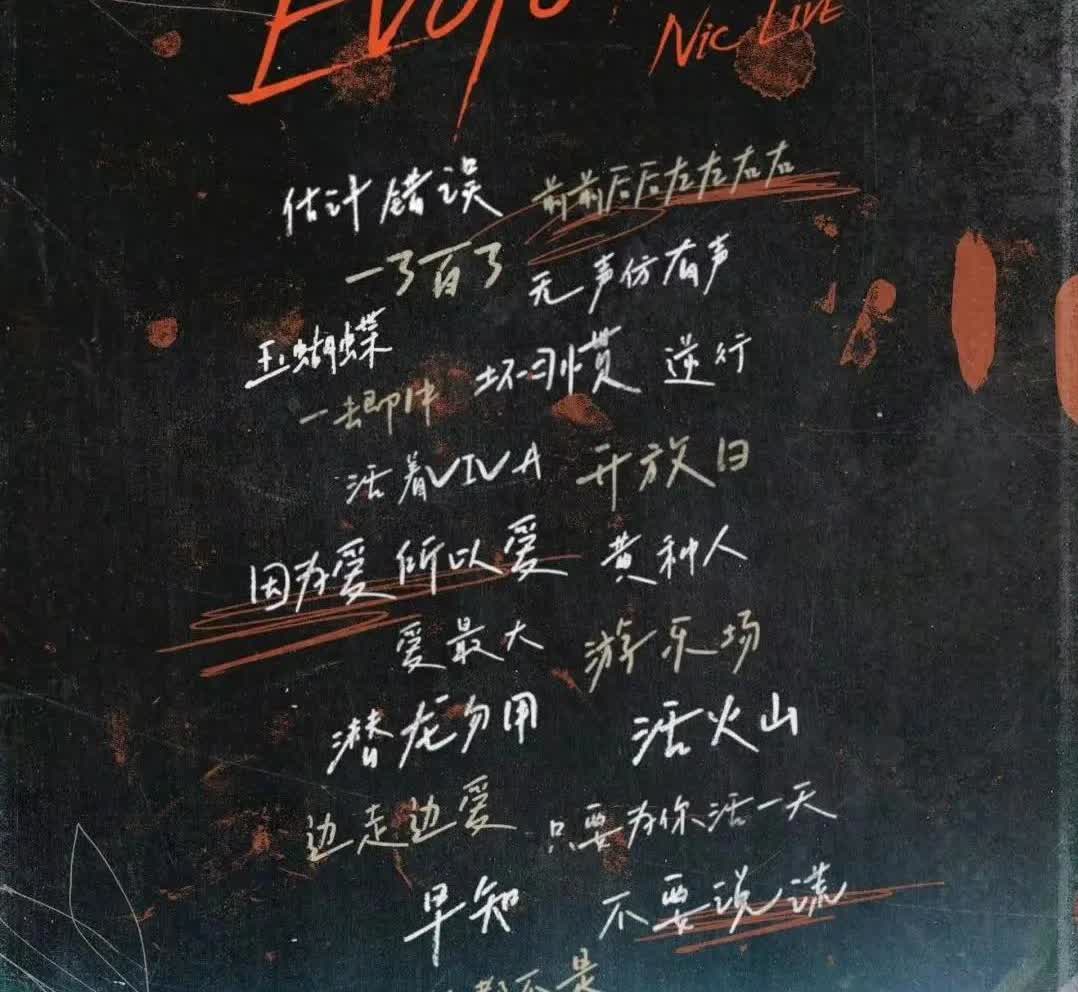 Evolo
Nic Live
估计错误 前前后后左左右右
一了百了 无声仿有声
玉蝴蝶
一击即中 坏习惯 逆行
活着VIVA 开放日
因为爱所以爱 黄种人
爱最大 游乐场
潜龙勿用 活火山
边走边爱 只要为你活一天
早知 不要说谎
都不是